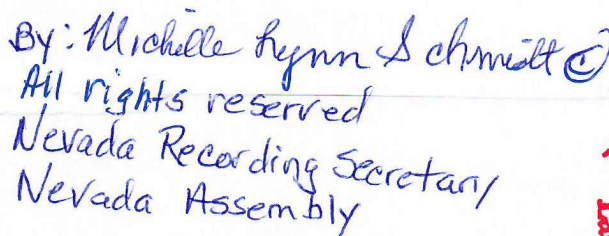 By: Michelle Lynn Schmidt ©
All rights reserved
Nevada Recording Secretary
Nevada Assembly